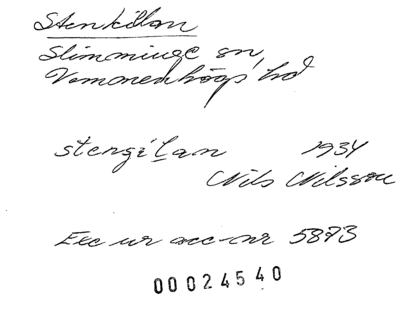 Stenkilan
Slimminge sn,
Vemmenhögs hd
stengilan 1934
Nils Nilsson
Exc ur acc-nr 5873
00024540